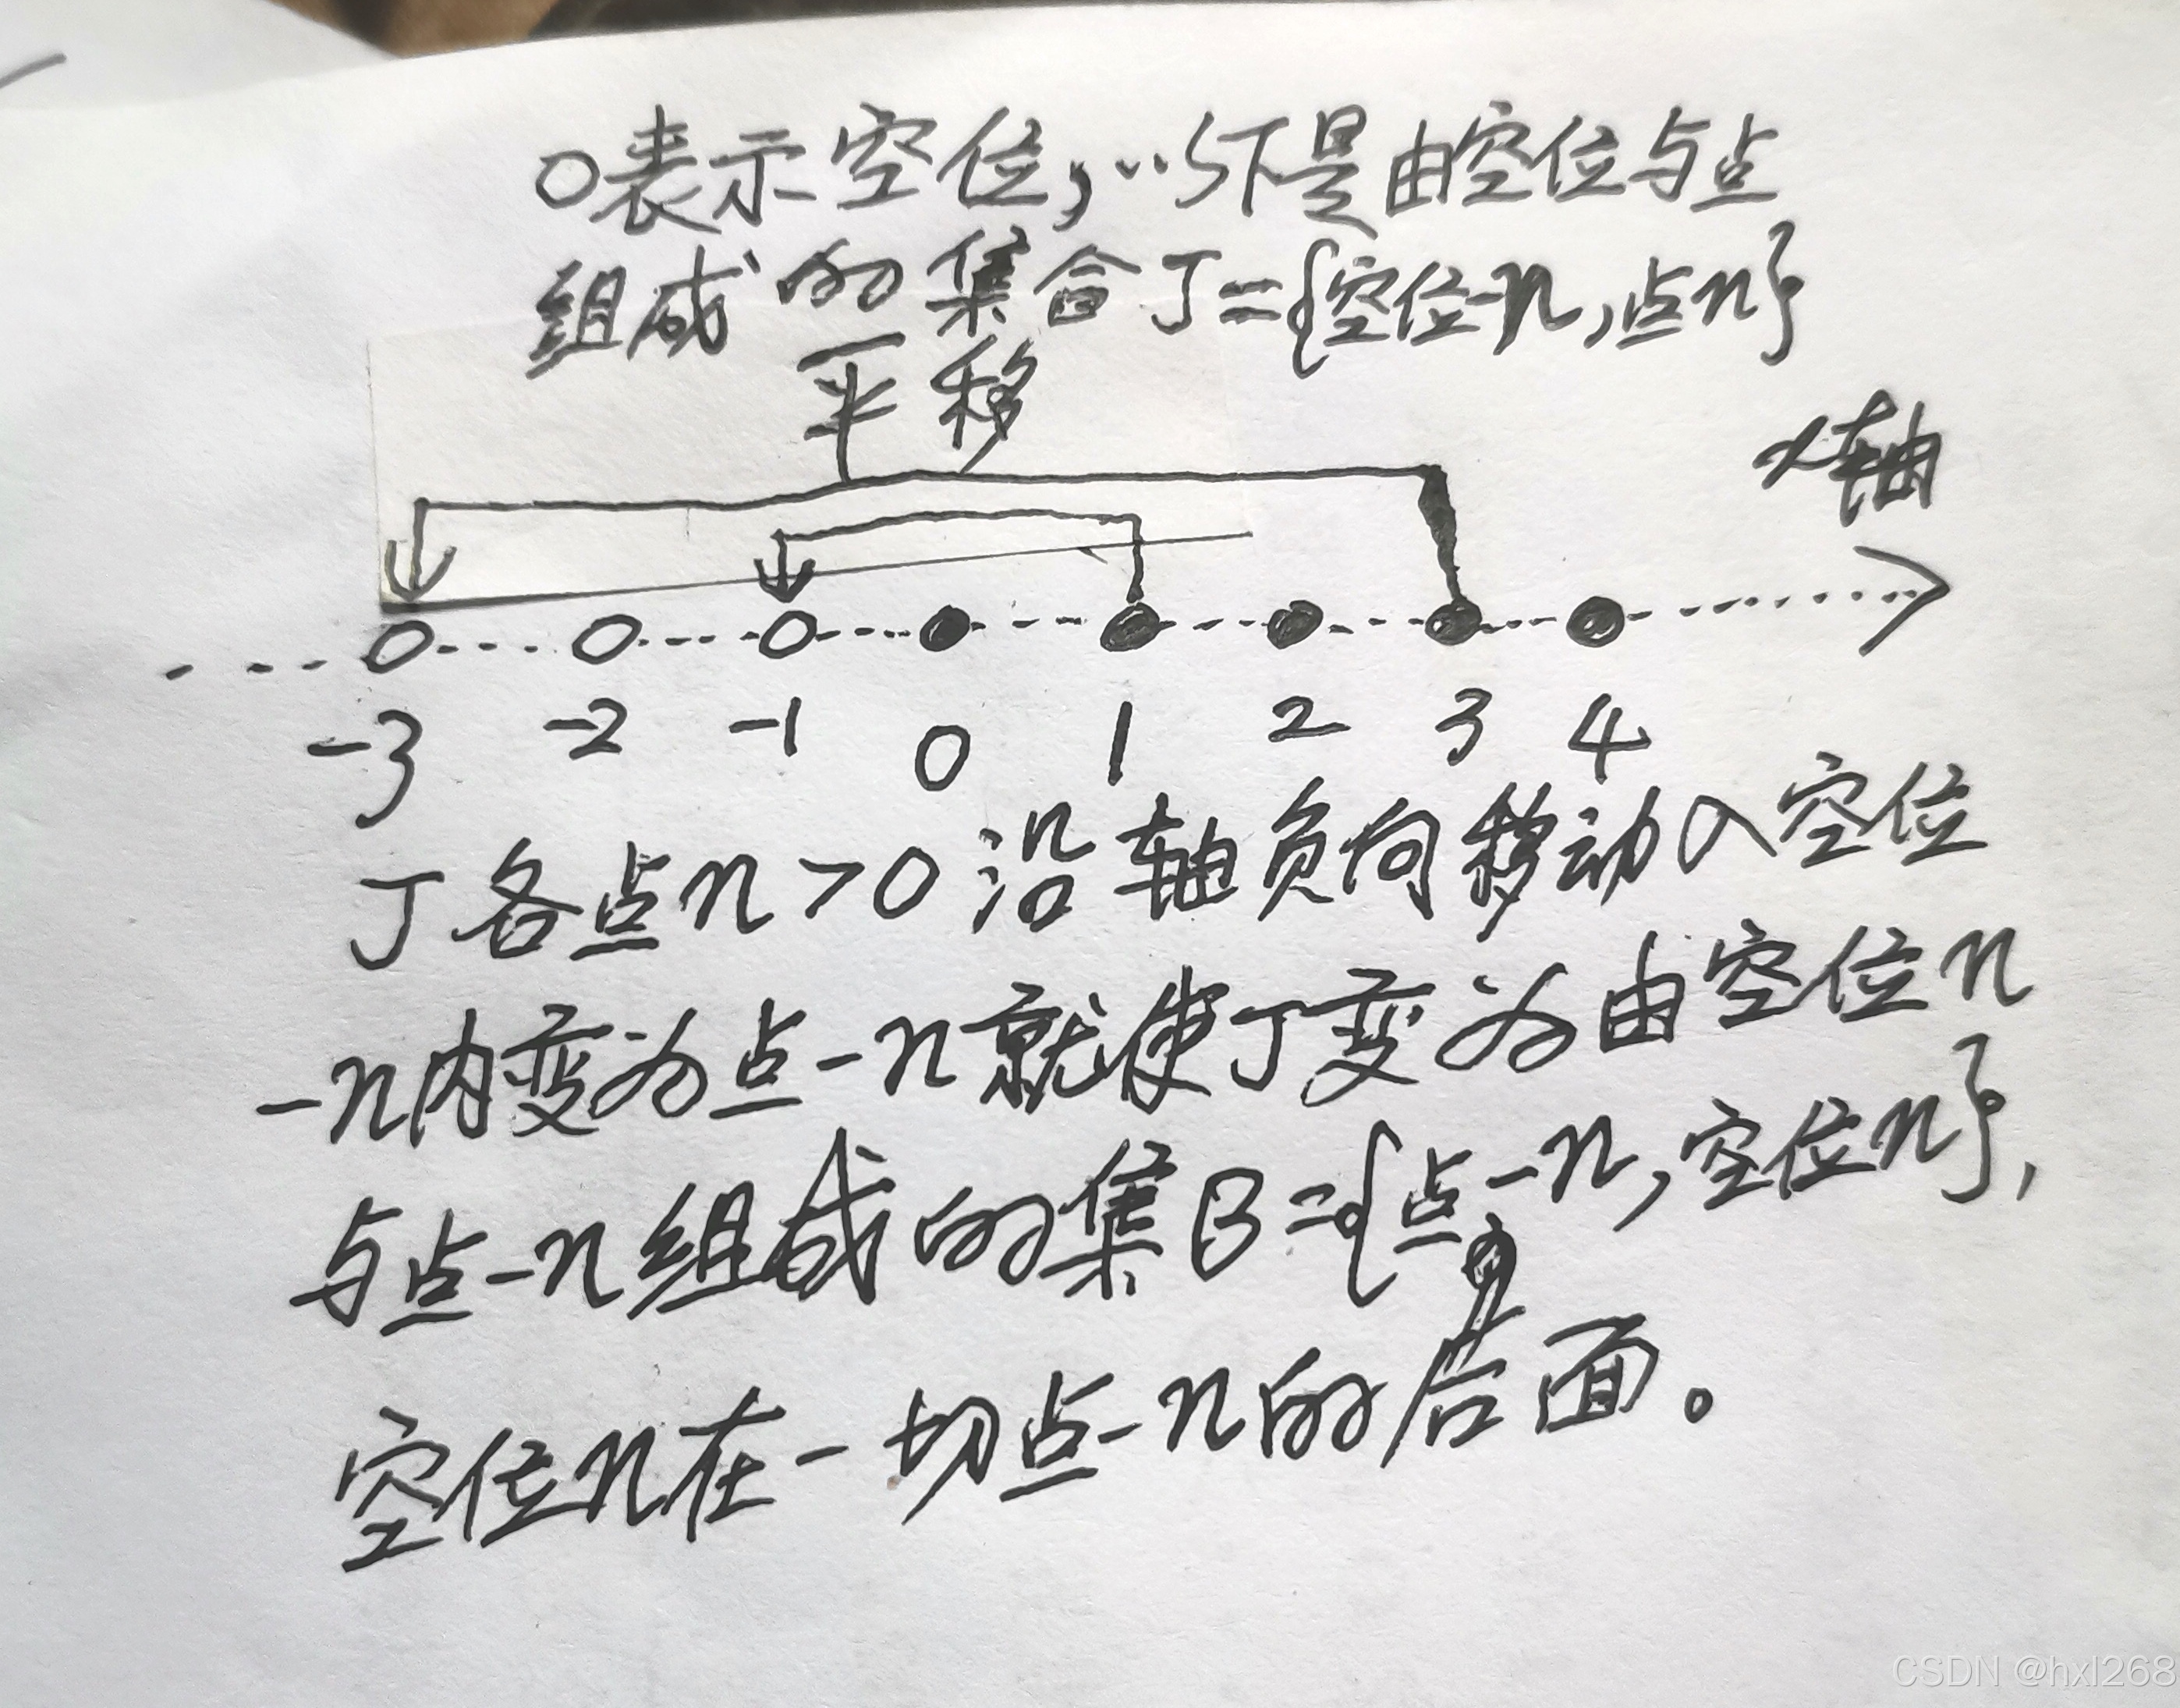 O表示空位,…以下是由空位与点
组成的集合J={空位-n,点n}
平移
x轴
-3 -2 -1 0 1 2 3 4
J各点n>0沿轴负向移动入空位
-n内变为点-n就使J变为由空位n
与点-n组成的集B={点-n,空位n},
空位n在一切点-n的后面。
CSDN @hxl268